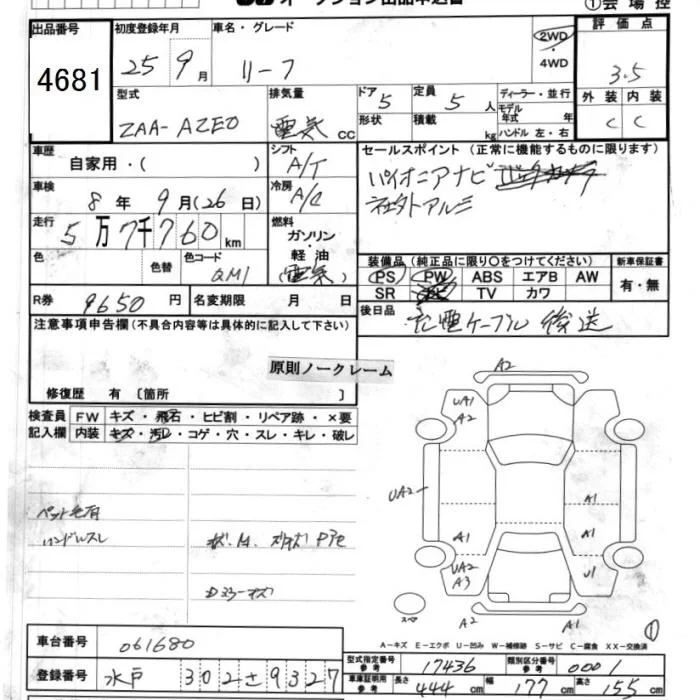 ①会場控
出品番号 初度登録年月 車名・グレード 評価点
4681 25年 9月 リーフ 2WD 4WD 3.5
型式 排気量 ドア 5 定員 5人 ディーラー・並行 外装 内装
ZAA-AZE0 電気 cc 形状 積載 kg モデル年式 年 ハンドル 左・右 C C
車歴 自家用・( ) シフト A/T セールスポイント (正常に機能するものに限ります)
車検 8年 9月 (26日) 冷房 A/C パイオニアナビ
走行 5万7千760km 燃料 ガソリン・軽油 (電気) 社外アルミ
色 色替 色コード QM1 装備品 (純正品に限り○をつけてください) 新車保証書
PS PW ABS エアB AW 有・無
SR ナビ TV カワ
R券 9650円 名変期限 月 日 後日品 充電ケーブル後送
注意事項申告欄 (不具合内容等は具体的に記入して下さい)
原則ノークレーム
修復歴 有 〔箇所 〕
検査員 FW キズ・飛石・ヒビ割・リペア跡・×要
記入欄 内装 キズ・汚レ・コゲ・穴・スレ・キレ・破レ
A2
UA1
A2
UA2
A1
A1
A1
UA2
A3
U1
A2
A1
ペット毛有
ハンドルスレ
Dミラーキズ
スペア
①
A-キズ E-エクボ U-凹み W-補修跡 S-サビ C-腐食 XX-交換済
車台番号 061680
型式指定番号 参考 17436 類別区分番号 参考 0001
登録番号 水戸 302 さ 9327
車庫証明用 参考 長さ 444cm 幅 177cm 高さ 155cm